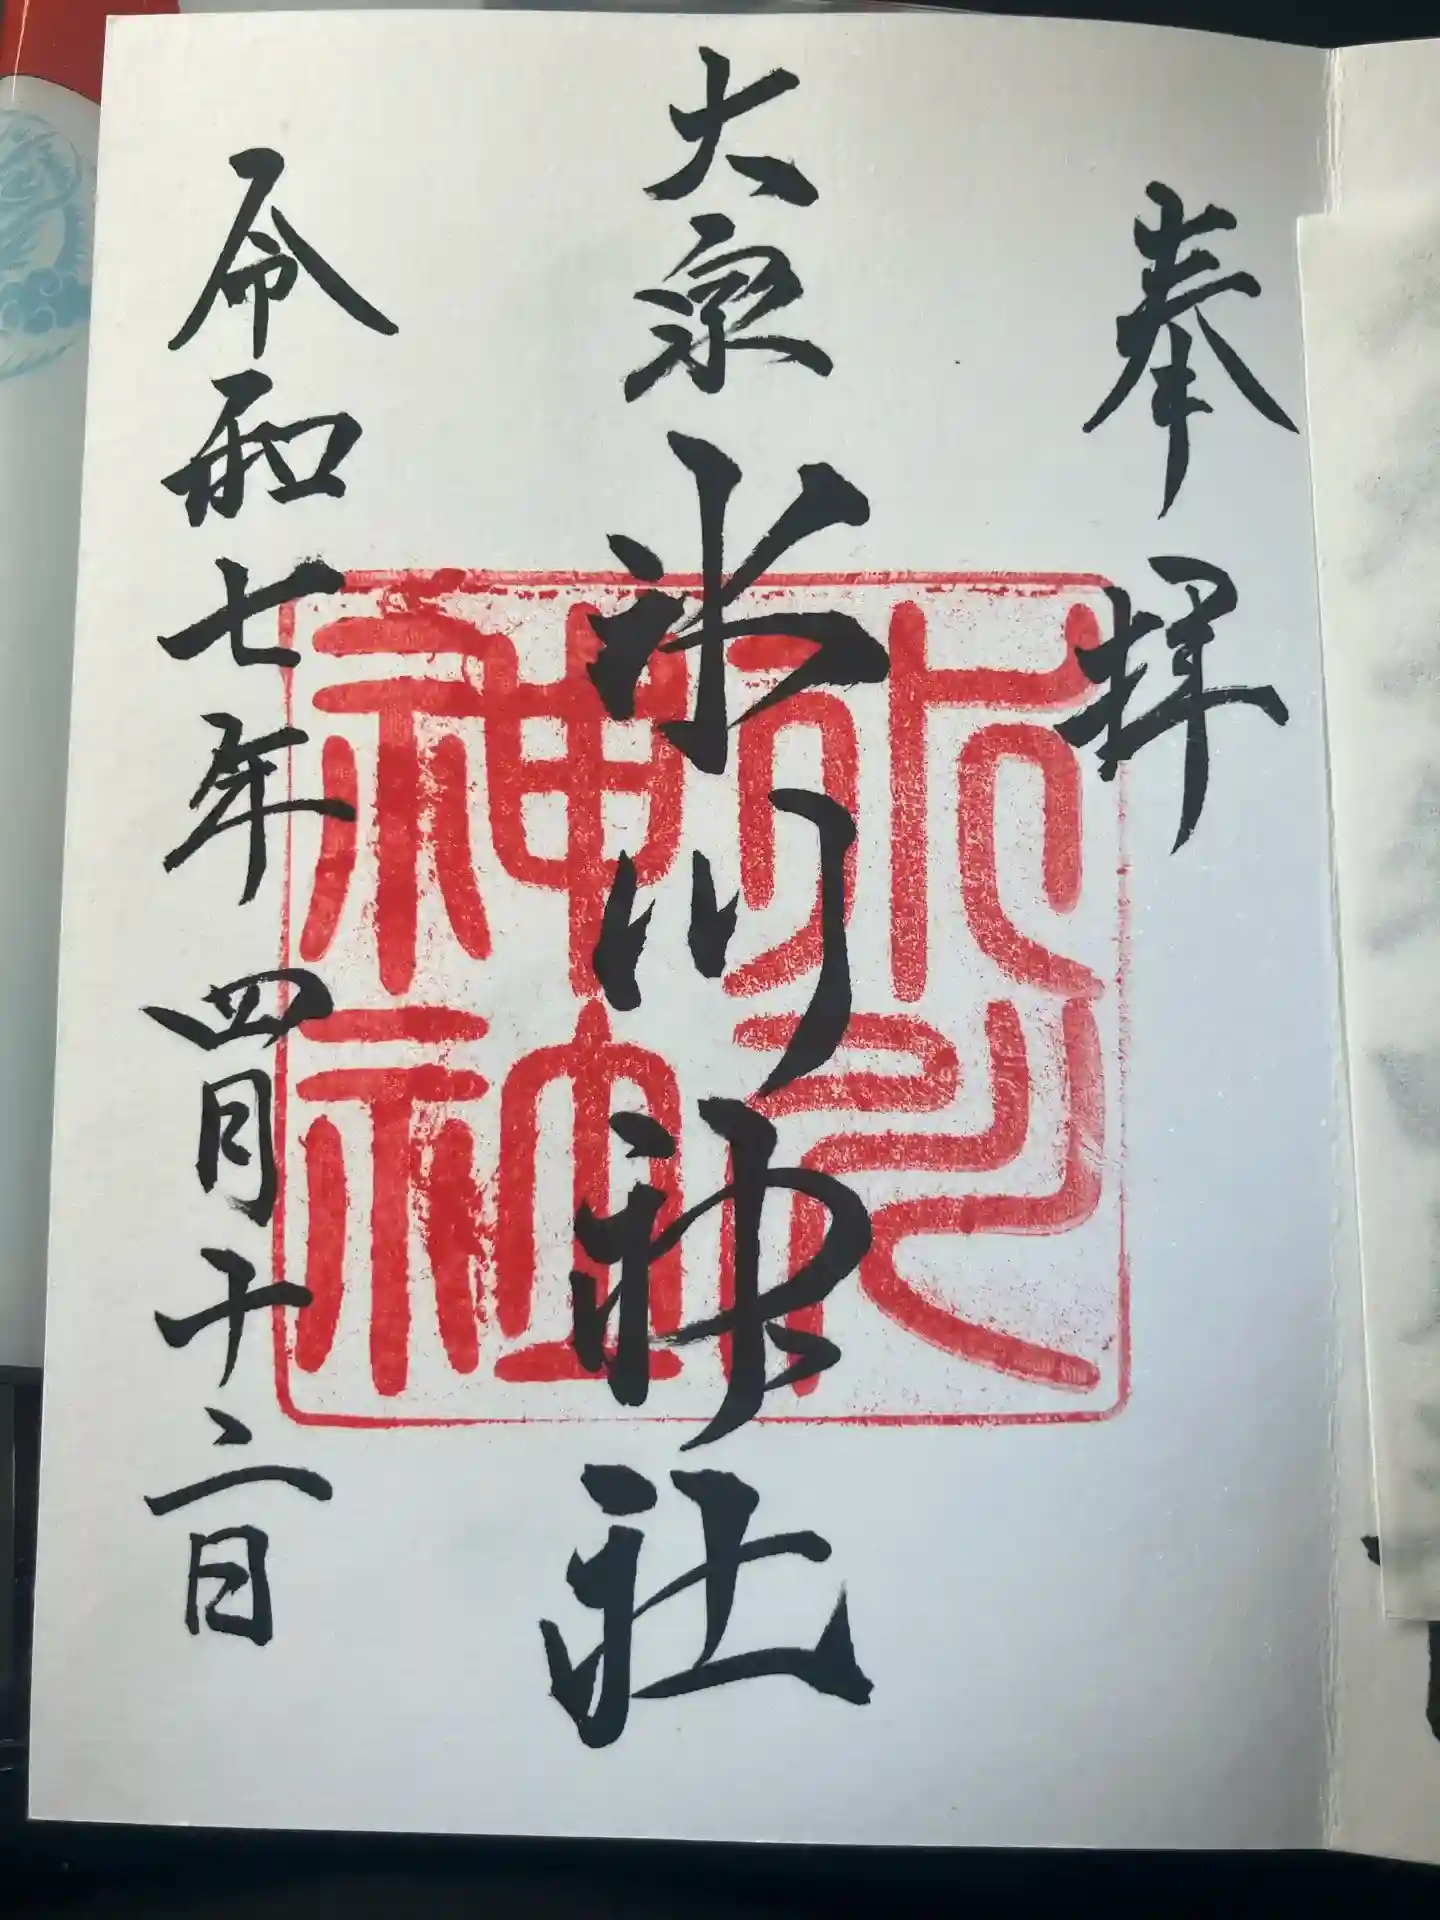 奉拝
大泉氷川神社
氷川神社
令和七年四月十二日